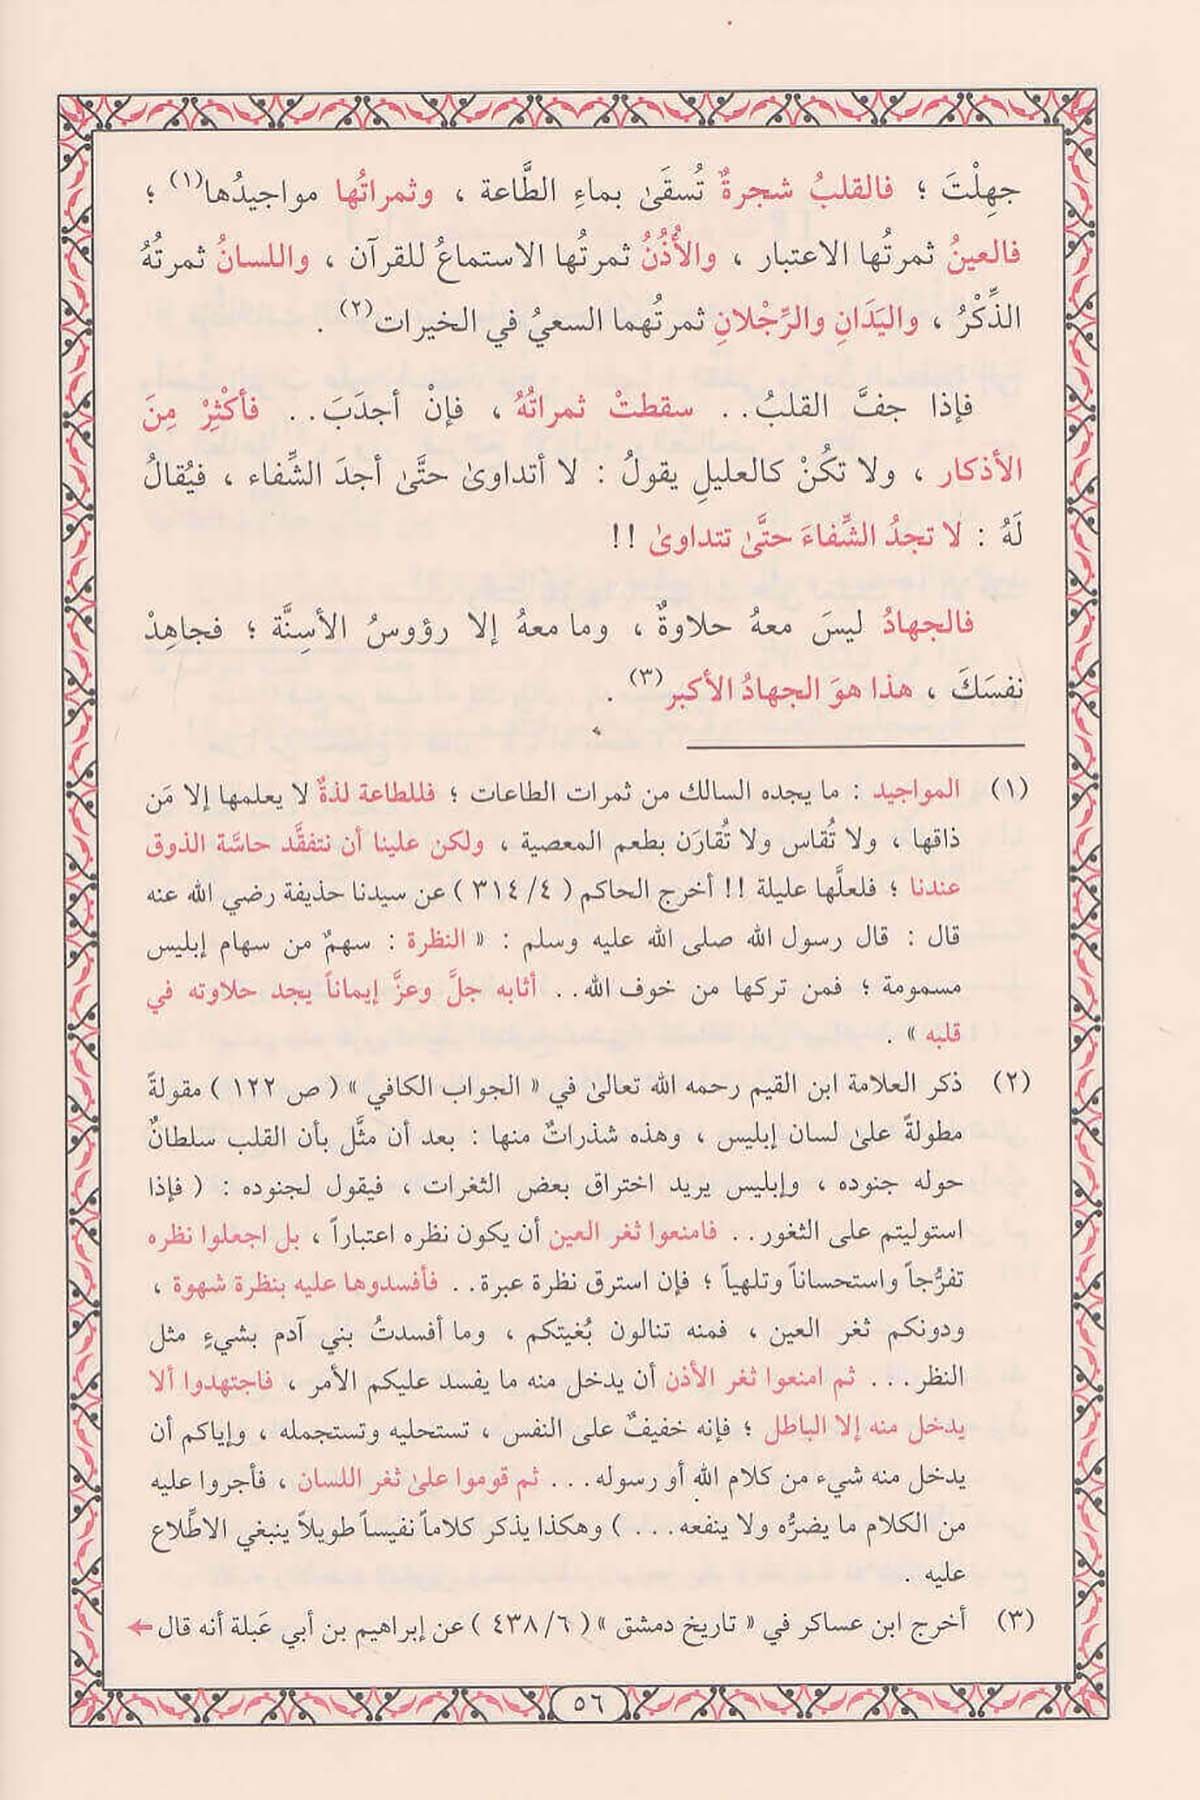 جهِلْتَ ؛ فالقلبُ شجرةٌ تُسقَىٰ بماءِ الطَّاعة ، وثمراتُها مواجيدُها(١) ؛
فالعينُ ثمرتُها الاعتبار ، والأُذُنُ ثمرتُها الاستماعُ للقرآن ، واللسانُ ثمرتُهُ
الذِّكْرُ ، واليَدَانِ والرِّجْلانِ ثمرتُهما السعيُ في الخيرات(٢) .
فإذا جفَّ القلبُ.. سقطتْ ثمراتُهُ ، فإنْ أجدَبَ.. فأكثِرْ مِنَ
الأذكار ، ولا تكُنْ كالعليلِ يقولُ : لا أتداوىٰ حتَّىٰ أجدَ الشِّفاء ، فيُقالُ
لَهُ : لا تجدُ الشِّفاءَ حتَّىٰ تتداوىٰ !!
فالجهادُ ليسَ معهُ حلاوةٌ ، وما معهُ إلا رؤوسُ الأسِنَّة ؛ فجاهِدْ
نفسَكَ ، هذا هوَ الجهادُ الأكبر(٣) .
(١) المواجيد : ما يجده السالك من ثمرات الطاعات ؛ فللطاعة لذةٌ لا يعلمها إلا مَن
ذاقها ، ولا تُقاس ولا تُقارَن بطعم المعصية ، ولكن علينا أن نتفقَّد حاسَّة الذوق
عندنا ؛ فلعلَّها عليلة !! أخرج الحاكم ( ٤/ ٣١٤ ) عن سيدنا حذيفة رضي الله عنه
قال : قال رسول الله صلى الله عليه وسلم : « النظرة : سهمٌ من سهام إبليس
مسمومة ؛ فمن تركها من خوف الله.. أثابه جلَّ وعزَّ إيماناً يجد حلاوته في
قلبه » .
(٢) ذكر العلامة ابن القيم رحمه الله تعالىٰ في « الجواب الكافي » ( ص ١٢٢ ) مقولةً
مطولةً علىٰ لسان إبليس ، وهذه شذراتٌ منها : بعد أن مثَّل بأن القلب سلطانٌ
حوله جنوده ، وإبليس يريد اختراق بعض الثغرات ، فيقول لجنوده : ( فإذا
استوليتم على الثغور.. فامنعوا ثغر العين أن يكون نظره اعتباراً ، بل اجعلوا نظره
تفرُّجاً واستحساناً وتلهياً ؛ فإن استرق نظرة عبرة.. فأفسدوها عليه بنظرة شهوة ،
ودونكم ثغر العين ، فمنه تنالون بُغيتكم ، وما أفسدتُ بني آدم بشيءٍ مثل
النظر... ثم امنعوا ثغر الأذن أن يدخل منه ما يفسد عليكم الأمر ، فاجتهدوا ألا
يدخل منه إلا الباطل ؛ فإنه خفيفٌ على النفس ، تستحليه وتستجمله ، وإياكم أن
يدخل منه شيء من كلام الله أو رسوله... ثم قوموا علىٰ ثغر اللسان ، فأجروا عليه
من الكلام ما يضرُّه ولا ينفعه... ) وهكذا يذكر كلاماً نفيساً طويلاً ينبغي الاطِّلاع
عليه .
(٣) أخرج ابن عساكر في « تاريخ دمشق » ( ٦/ ٤٣٨ ) عن إبراهيم بن أبي عَبلة أنه قال
٥٦